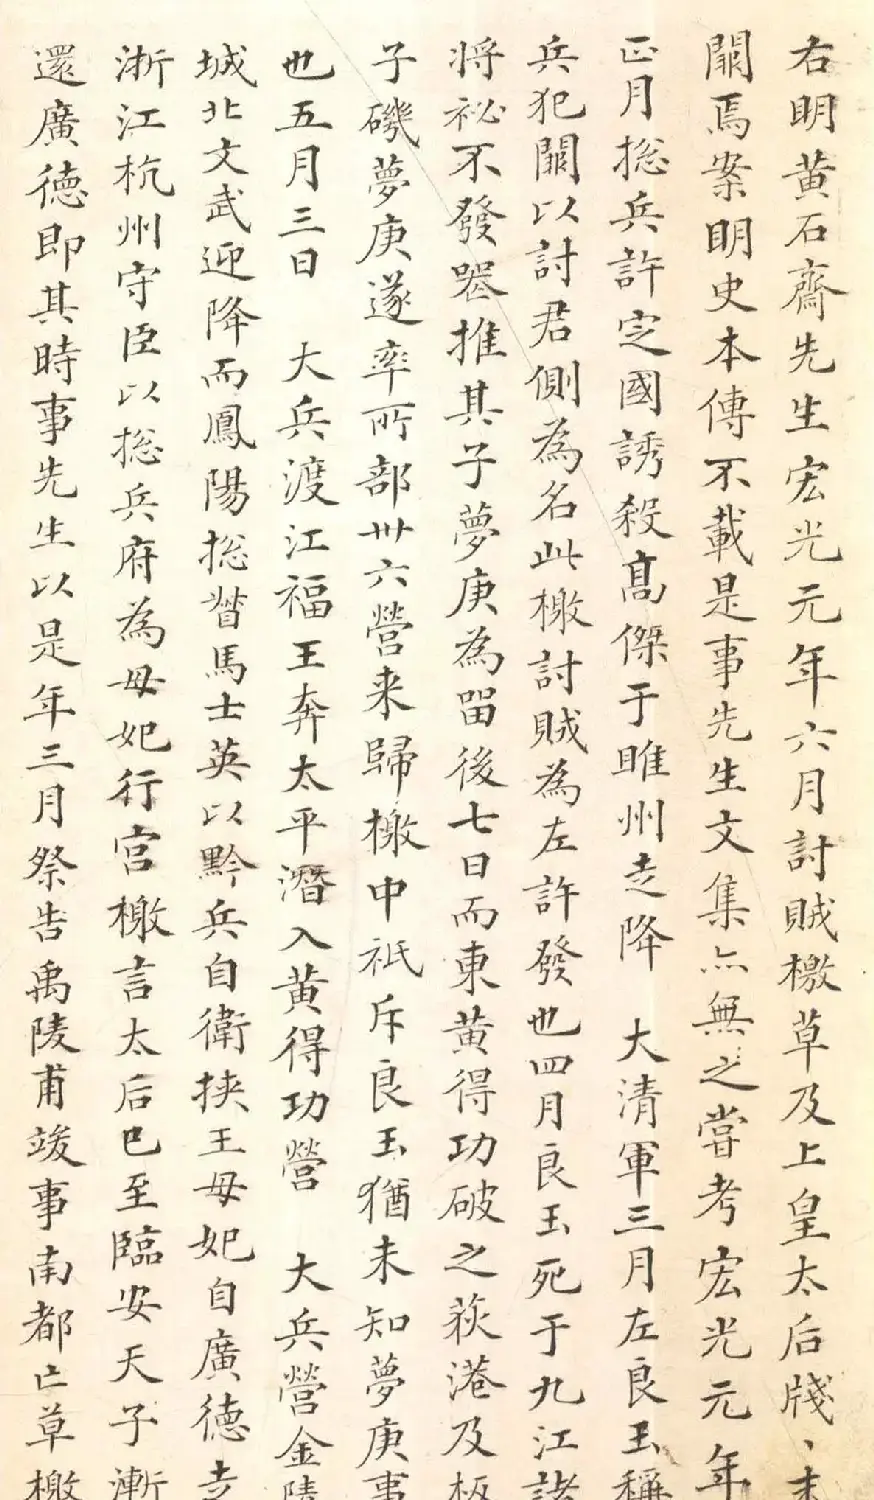 右明黃石齋先生宏光元年六月討賊檄草及上皇太后牋、
闕焉案明史本傳不載是事先生文集亦無之嘗考宏光元年
正月揔兵許定國誘殺高傑于睢州走降 大清軍三月左良玉稱
兵犯闕以討君側為名此檄討賊為左許發也四月良玉死于九江諸
将祕不發喪推其子夢庚為畱後七日而東黃得功破之荻港及板
子磯夢庚遂率所部卅六營来歸檄中祇斥良玉猶未知夢庚事
也五月三日 大兵渡江福王奔太平潛入黃得功營 大兵營金陵
城北文武迎降而鳳陽揔督馬士英以黔兵自衛挟王母妃自廣德走
浙江杭州守臣以揔兵府為母妃行宫檄言太后已至臨安天子漸
還廣德即其時事先生以是年三月祭告禹陵甫竣事南都亡草檄